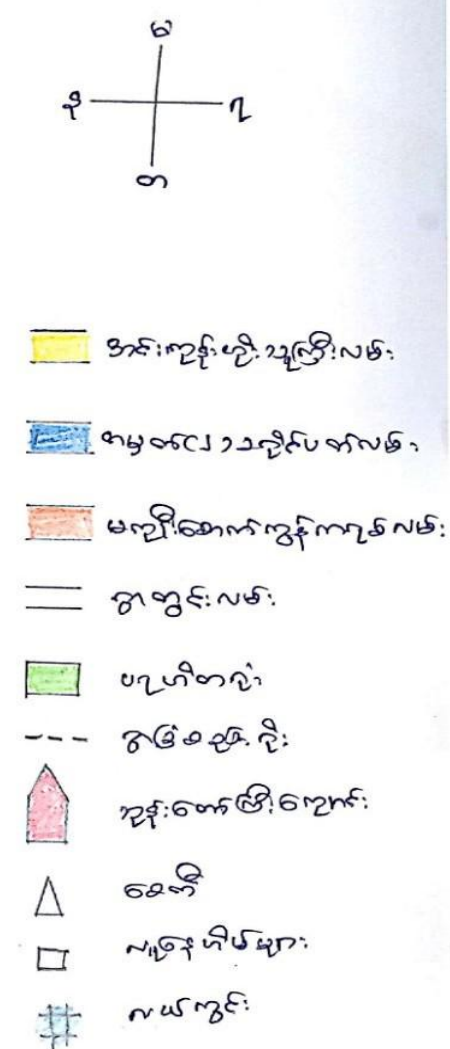 မ
စ ရ
တ
အင်းကုန်းဟိုးသူကြီးလမ်း
အမှတ်(၂)သလှိုင်ပတ်လမ်း
မကျီးစောက်ကွန်ကရစ်လမ်း
ရွာတွင်းလမ်း
ပရဟိတရုံး
ရွာခြံစည်းရိုး
ဘုန်းတော်ကြီးကျောင်း
စေတီ
လူနေဟိမ်များ
လယ်ကွင်း